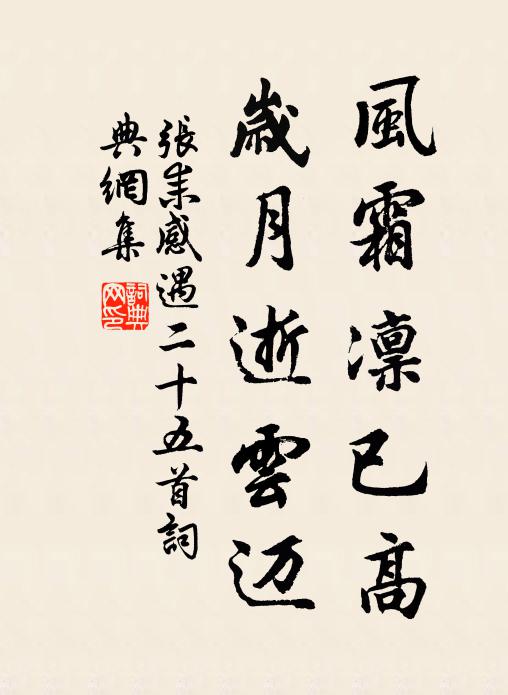 風霜凛已高
歲月逝雲迈
張耒感遇二十五首詞
典網集
詞典网印